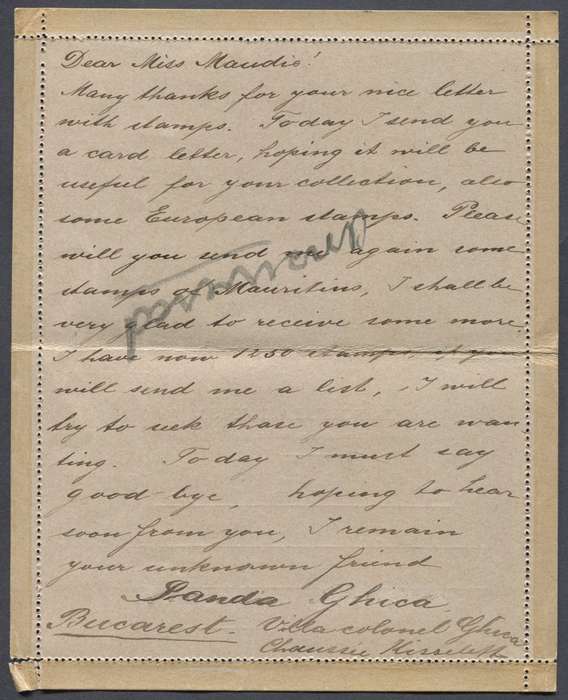 Dear Miss Maudie!
Many thanks for your nice letter
with stamps. Today I send you
a card letter, hoping it will be
useful for your collection, also
some European stamps. Please
will you send me again some
stamps of Mauritius, I shall be
very glad to receive some more,
I have now 1250 stamps, if you
will send me a list, I will
try to seek those you are wan
ting. Today I must say
good-bye, hoping to hear
soon from you, I remain
your unknown friend
Randa Ghica.
Bucarest. Villa colonel Ghica
Chaussée Kisseleff